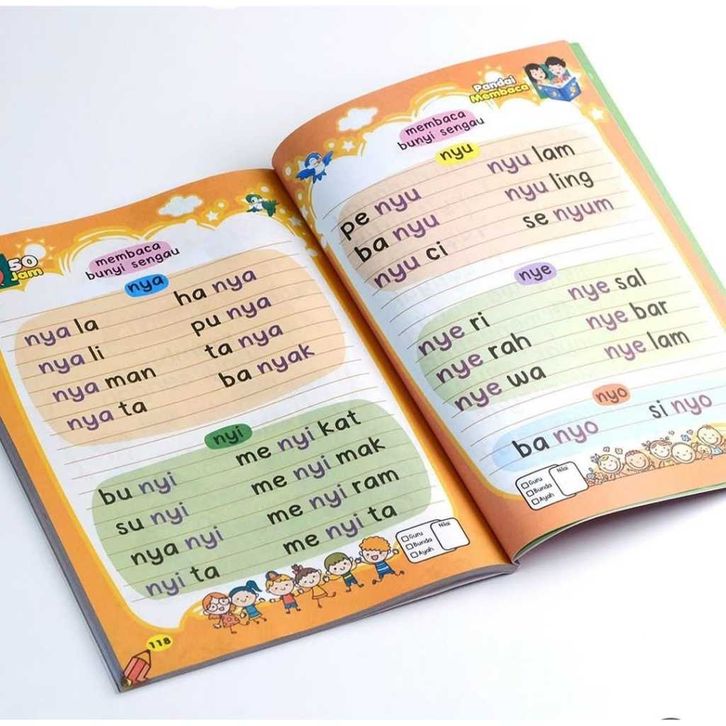 50
Jam
membaca
bunyi sengau
nya
nya la
ha nya
nya li
pu nya
nya man
ta nya
nya ta
ba nyak
nyi
bu nyi
me nyi kat
su nyi
me nyi mak
nya nyi
me nyi ram
nyi ta
me nyi ta
Guru
Bunda
Ayah
Nilai
118
Pandai
Membaca
membaca
bunyi sengau
nyu
pe nyu
nyu lam
ba nyu
nyu ling
nyu ci
se nyum
nye
nye ri
nye sal
nye rah
nye bar
nye wa
nye lam
nyo
ba nyo
si nyo
Guru
Bunda
Ayah
Nilai